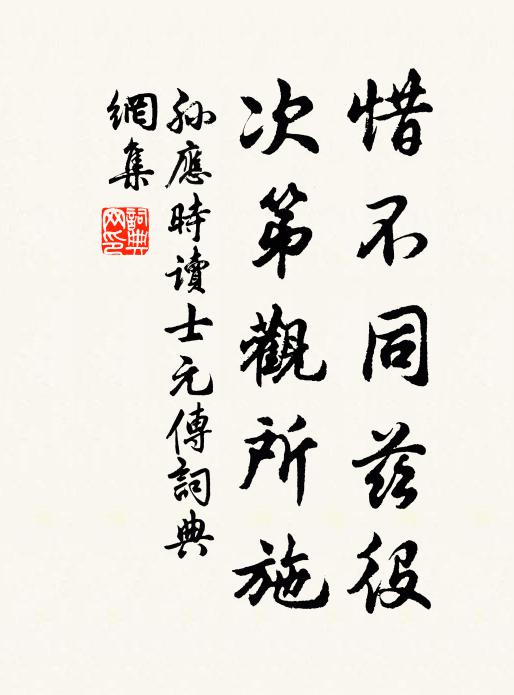 惜不同茲役
次第觀所施
孫應時讀士元傳詞典
網集
詞典网印